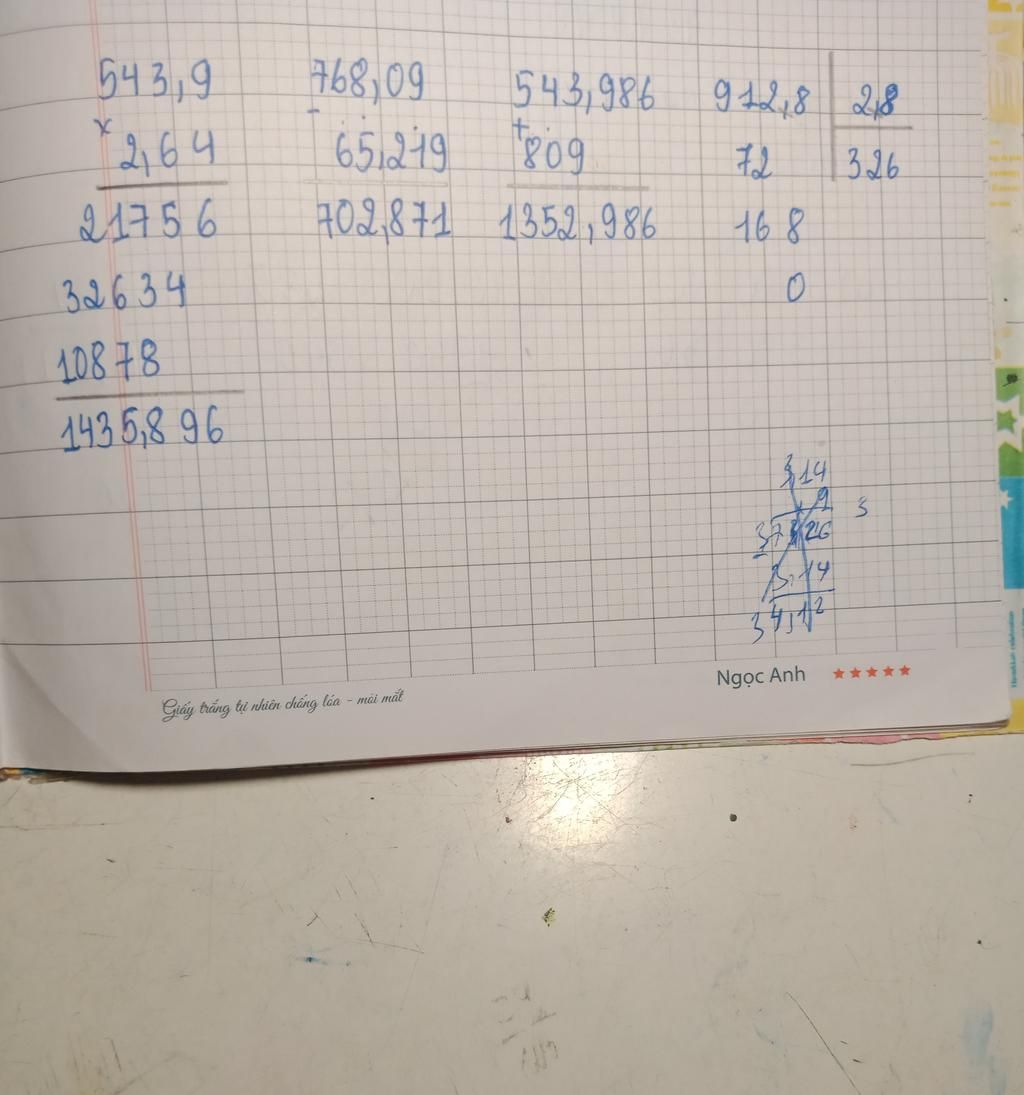 543,9 768,09 543,986 912,8 2,8
x - +
2,64 65,219 809 72 326
21756 702,871 1352,986 168
32634 0
10878
1435,896
3,14
9 3
26
3,14
34,12
Ngọc Anh ★★★★★
Giấy trắng tự nhiên chống lóa - mỏi mắt